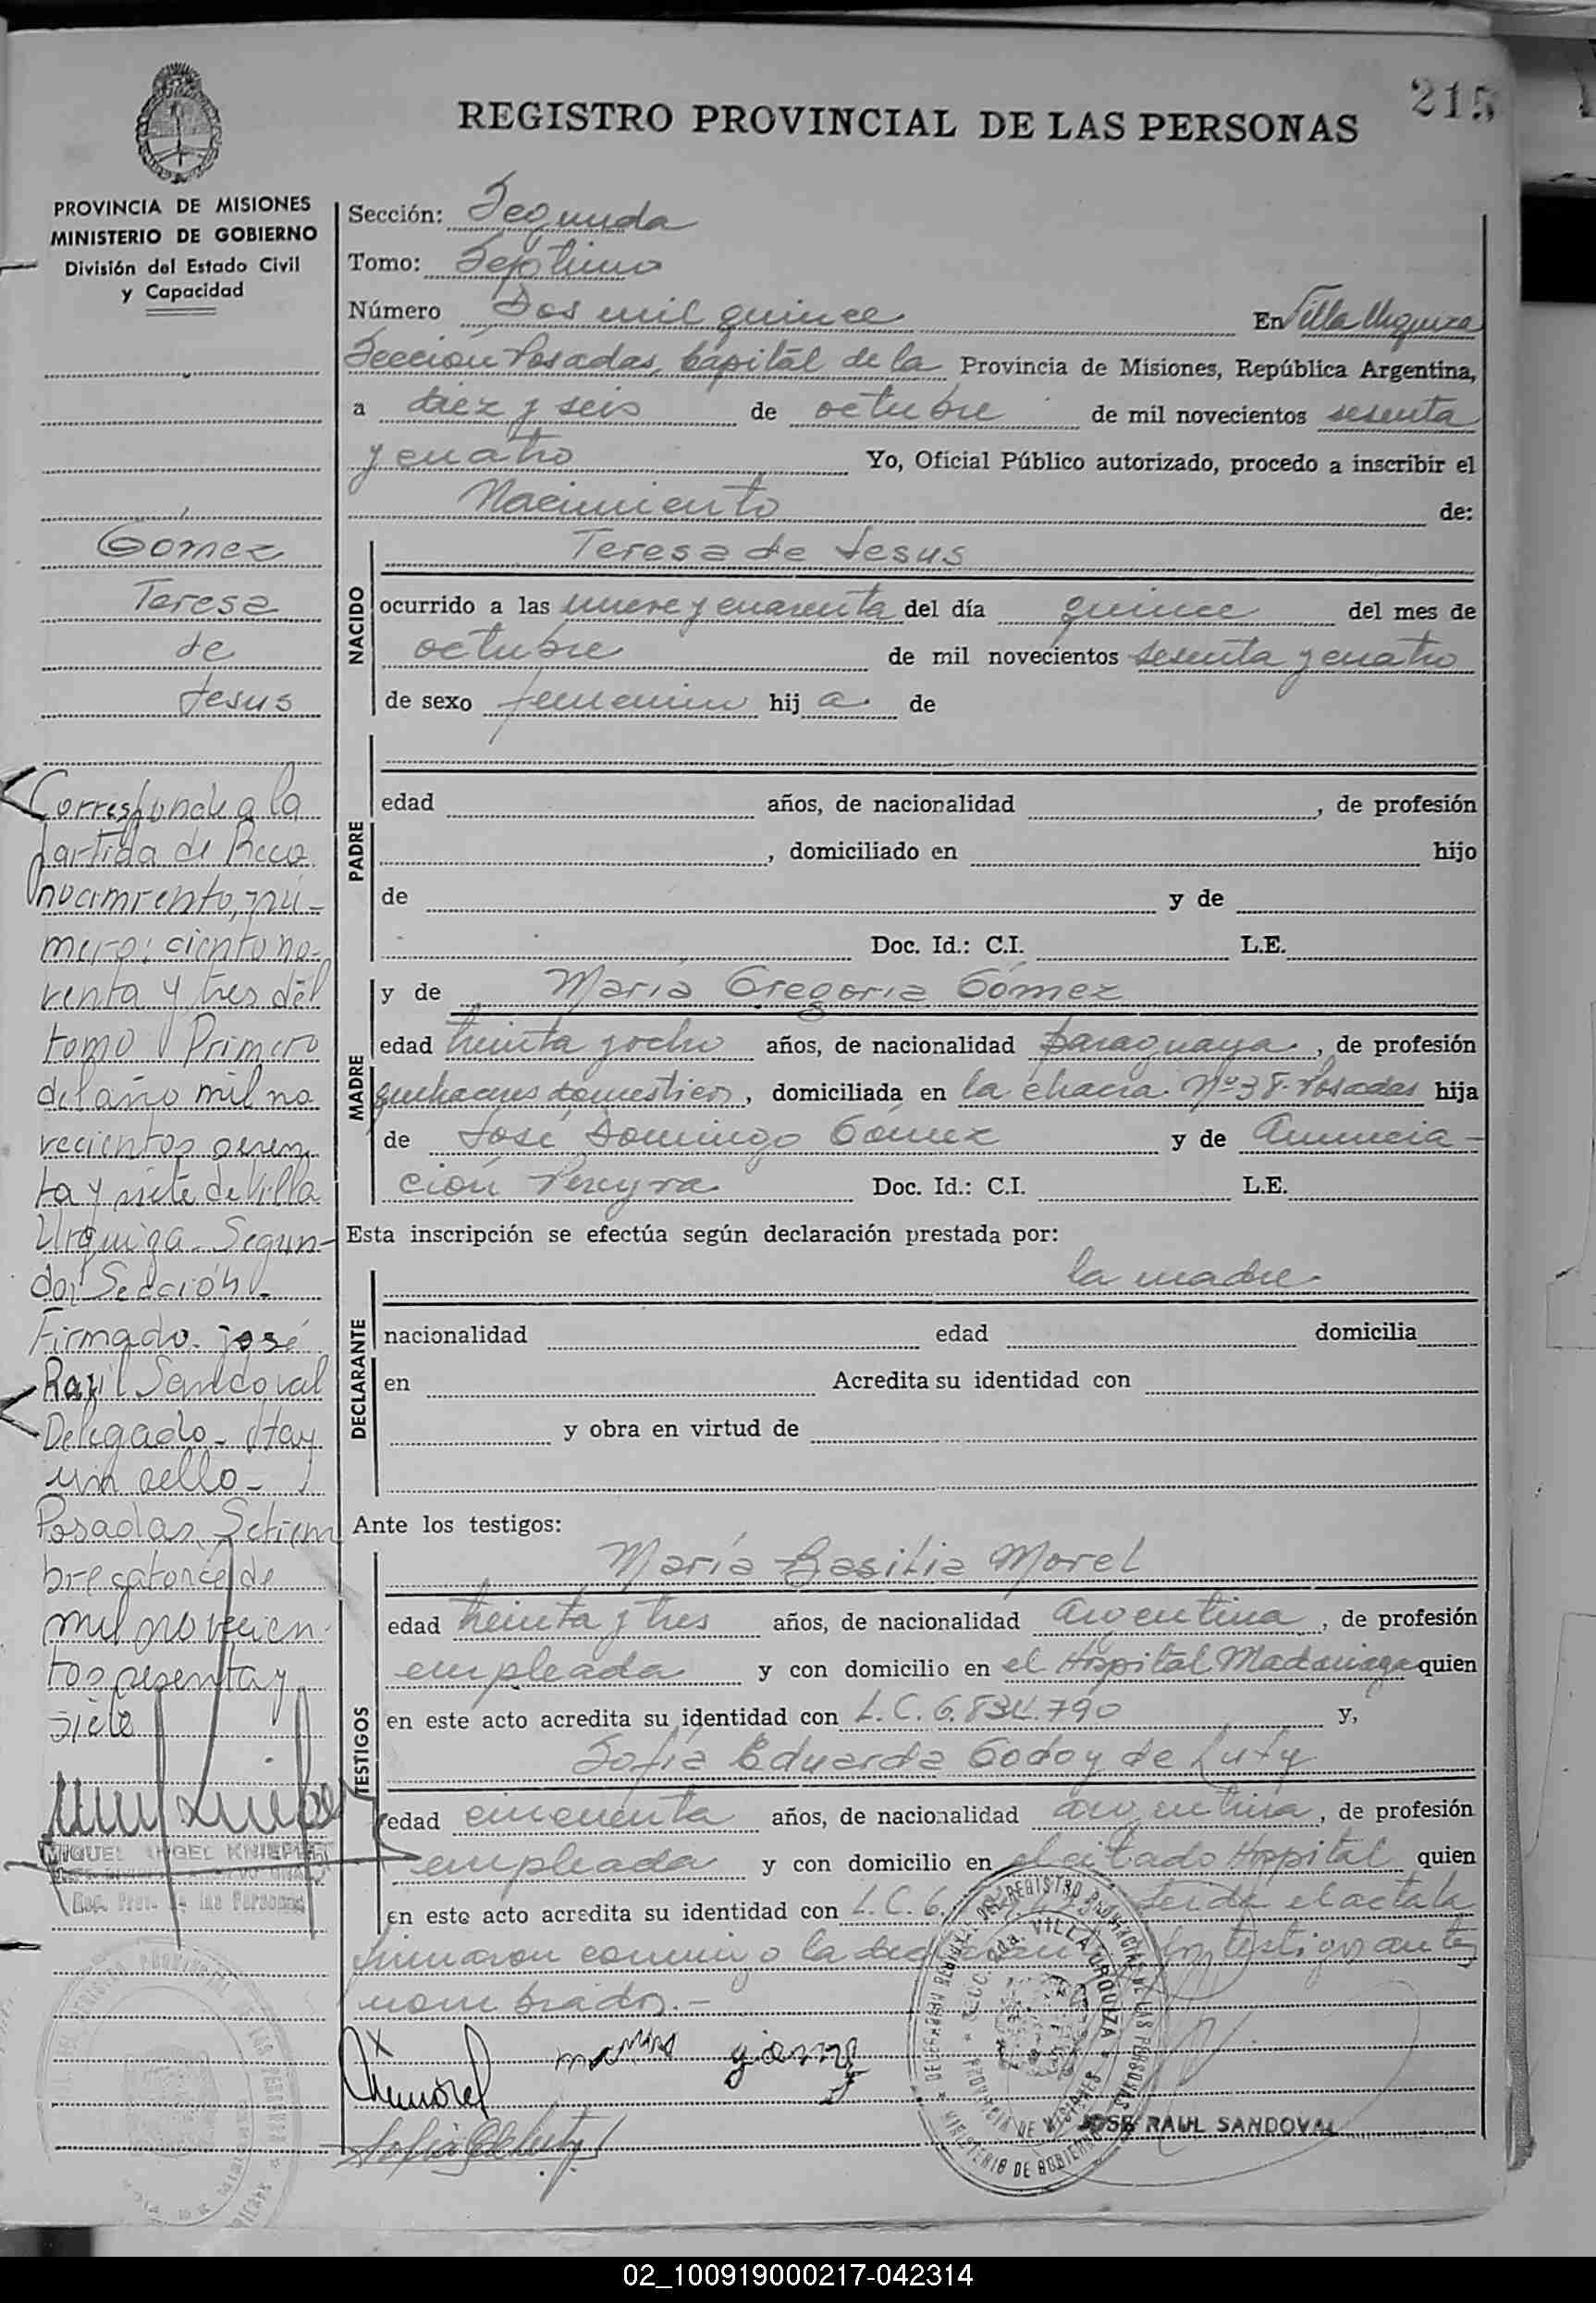 215
REGISTRO PROVINCIAL DE LAS PERSONAS
PROVINCIA DE MISIONES
MINISTERIO DE GOBIERNO
División del Estado Civil
y Capacidad
Gómez
Teresa
de
Jesus
Corresponde a la
partida de Reco
nocimiento, nú-
mero: ciento no-
venta y tres del
tomo Primero
del año mil no
vecientos sesen
ta y siete de Villa
Urquiza. Segun-
da Sección.
Firmado. José
Raúl Sandoval
Delegado. Hay
un sello.
Posadas, Setiem
bre catorce de
mil novecien
tos sesenta y
siete
MIGUEL ANGEL KNIEPER
Reg. Prov. de las Personas
Sección: Segunda
Tomo: Séptimo
Número Dos mil quince En Villa Urquiza
Sección Posadas, Capital de la Provincia de Misiones, República Argentina,
a diez y seis de octubre de mil novecientos sesenta
y cuatro Yo, Oficial Público autorizado, procedo a inscribir el
Nacimiento de:
NACIDO
Teresa de Jesus
ocurrido a las nueve y cuarenta del día quince del mes de
octubre de mil novecientos sesenta y cuatro
de sexo femenino hij a. de
PADRE
edad años, de nacionalidad , de profesión
, domiciliado en hijo
de y de
Doc. Id.: C.I. L.E.
MADRE
y de María Gregoria Gómez
edad treinta y ocho años, de nacionalidad paraguaya , de profesión
quehaceres domesticos, domiciliada en la chacra Nº 38. Posadas hija
de José Domingo Gómez y de Anuncia-
ción Pereyra Doc. Id.: C.I. L.E.
Esta inscripción se efectúa según declaración prestada por:
DECLARANTE
la madre
nacionalidad edad domicilia
en Acredita su identidad con
y obra en virtud de
Ante los testigos:
TESTIGOS
María Basilia Morel
edad treinta y tres años, de nacionalidad argentina , de profesión
empleada y con domicilio en el Hospital Madariaga quien
en este acto acredita su identidad con L.C. 6.834.790 y,
Sofía Eduarda Godoy de Luty
edad cincuenta años, de nacionalidad argentina , de profesión
empleada y con domicilio en el citado Hospital quien
en este acto acredita su identidad con L.C. 6. Leida el acta la
firmaron conmigo la los testigos antes
nombrados.-
JOSE RAUL SANDOVAL
02_100919000217-042314